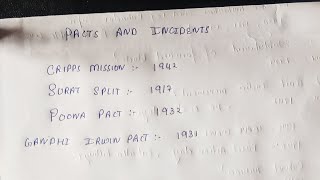 PACTS AND INCIDENTS
CRIPPS MISSION :- 1942
SURAT SPLIT :- 1917
POONA PACT :- 1932
GANDHI IRWIN PACT :- 1931